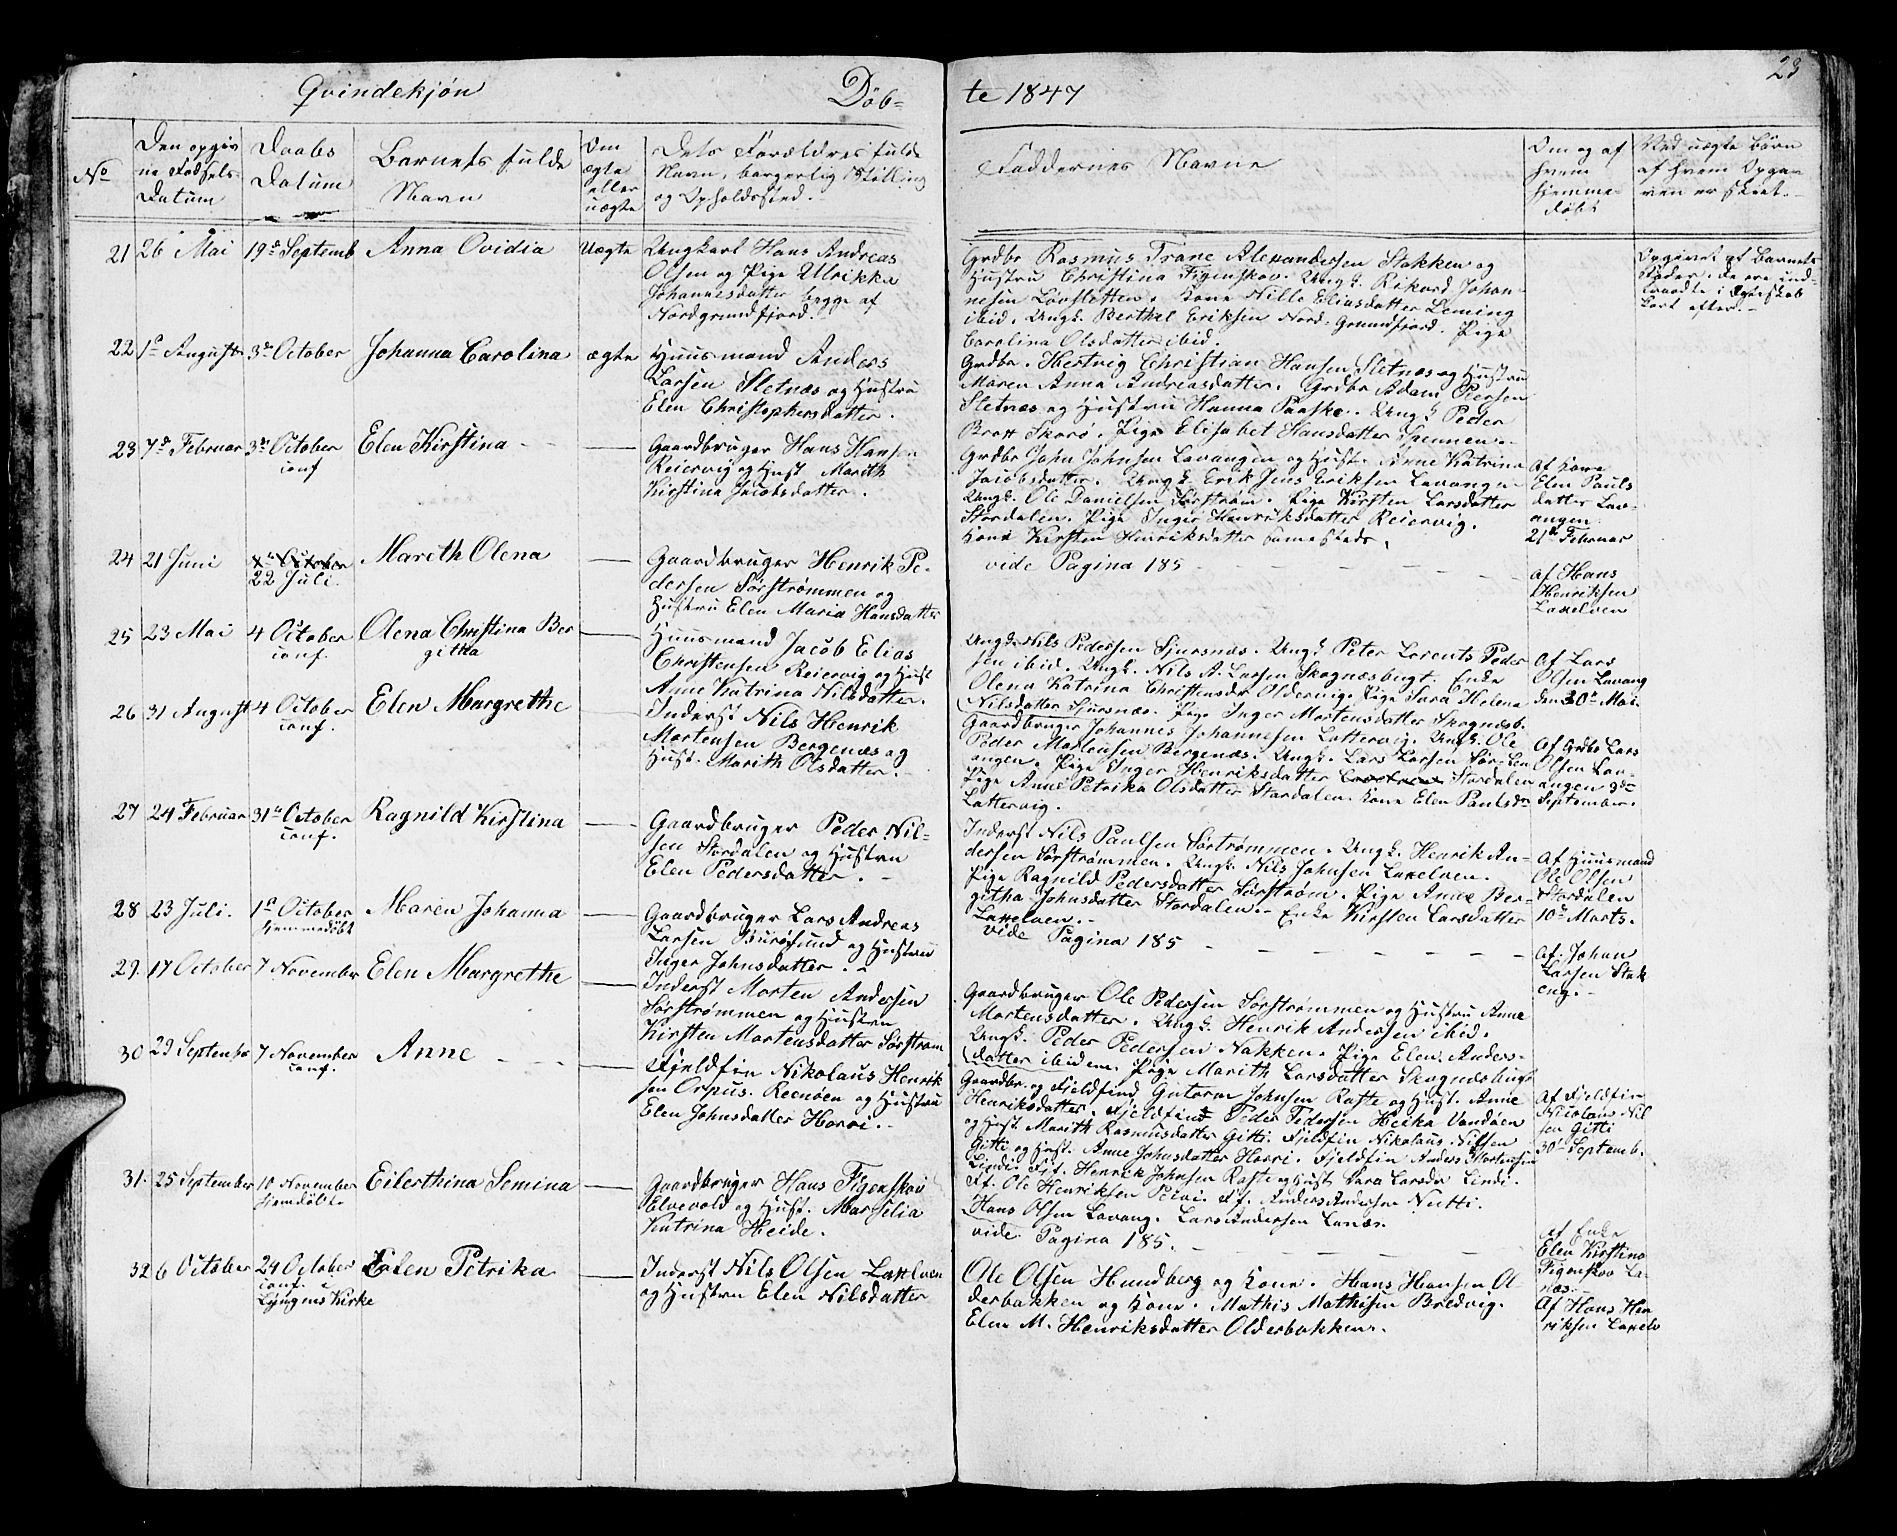 23
Qvindekjøn
Døb-
te 1847
No
Den opgiv
ne Fødsels-
Datum
Daabs
Datum
Barnets fulde
Navn
Om
ægte
eller
uægte
Dets Forældres fulde
Navn, borgerlig Stilling
og Opholdssted.
Faddernes Navne
Om og af
hvem
hjemme-
døbt
Ved uægte Børn
af hvem Opga-
ven er skeet.
21
26 Mai
19de Septemb
Anna Ovidia
Uægte
Ungkarl Hans Andreas
Olsen og Pige Ulrikke
Johannesdatter begge af
Nordgrundfjord.
Grdbr Rasmus Trane Alexandersen Stakken og
Hustru Christina Figenskov. Ungk. Rikard Johan-
nesen Løvsletten. Kone Nille Eliasdatter Leming
ibid. Ungk. Berthel Eriksen Nord-Grundfjord. Pige
Carolina Olsdatter ibid.
Opgivet af Barnets
Fader. De ere ind-
traadte i Ægteskab
kort efter.
22
1ste August
3de October
Johanna Carolina
ægte
Huusmand Anders
Larsen Sletnæs og Hustru
Elen Christophersdatter.
Grdbr. Hertvig Christian Hansen Sletnæs og Hustru
Maren Anna Andreasdatter. Grdbr Adam Piersen
Sletnæs og Hustru Hanna Paaske. Ungk Peder
Brott Skarø. Pige Elisabet Hansdatter Spennen.
23
7de Februar
3de October
conf
Elen Kirstina
Gaardbruger Hans Hansen
Reiervig og Hust Marith
Kirstina Jacobsdatter.
Grdbr John Johnsen Lavangen og Hust. Anne Katrina
Jacobsdatter. Ungk. Erik Jens Eriksen Lavangen
Ungk. Ole Danielsen Sørstrøm. Pige Kirsten Larsdatter
Stordalen. Pige Inger Henriksdatter Reiervig.
Kone Kirsten Henriksdatter sammesteds.
Af Kone
Elen Pauls
datter Lav-
angen
21de Februar
24
21 Juni
October
22 Juli.
Marith Olena
Gaardbruger Henrik Pe-
dersen Sørstrømmen og
Hustru Elen Maria Hansdatter
vide Pagina 185
af Hans
Henriksen
Laxelven
25
23 Mai
4 October
conf.
Olena Christina Ber
gitta
Huusmand Jacob Elias
Christensen Reiervig og Hust
Anne Katrina Nilsdatter.
Ungk. Nils Pedersen Sjursnæs. Ungk Peter Lorents Peder
sen ibid. Ungk. Nils A. Larsen Skognæsbugt. Enke
Olena Katrina Christensdr Oldervig. Pige Sara Helena
Nilsdatter Sjursnæs. Pige Inger Mortensdatter Skognæsb.
Af Lars
Olsen Lavang
den 30te Mai.
26
31 August
4 October
conf.
Elen Margrethe
Inderst Nils Henrik
Mortensen Bergenæs og
Hust. Marith Olsdatter.
Gaardbruger Johannes Johannesen Lattervig. Ungk. Ole
Peder Mortensen Bergenæs. Ungk. Lars Larsen Sør-Lav
angen. Pige Inger Henriksdatter Stordalen
Pige Anne Petrika Olsdatter Stordalen. Kone Elen Paulsdr
Lattervig.
Af Grdbr Lars
Olsen Lav-
angen 3de
September.
27
24 Februar
31te October
conf.
Ragnild Kirstina
Gaardbruger Peder Nil-
sen Stordalen og Hustru
Elen Pedersdatter.
Inderst Nils Paulsen Sørstrømmen. Ungk. Henrik An-
dersen Sørstrømmen. Ungk. Nils Johnsen Laxelven.
Pige Ragnild Pedersdatter Sørstrøm. Pige Anne Ber-
githa Johnsdatter Stordalen. Enke Kirsten Larsdatter
Laxelven.
Af Huusmand
Ole Olsen
Stordalen
10de Marts.
28
23 Juli.
1ste October
hjemmedøbt
Maren Johanna
Gaardbruger Lars Andreas
Larsen Burøsund og Hustru
Inger Johnsdatter.
vide Pagina 185
af Johan
Larsen Stak
eng.
29.
17 October
7 November
Elen Margrethe
Inderst Morten Andersen
Sørstrømmen og Hustru
Kirsten Mortensdatter Sørstrøm
Gaardbruger Ole Pedersen Sørstrømmen og Hustru Anne
Mortensdatter. Ungk. Henrik Andersen ibid.
Ungk. Peder Pedersen Nakken. Pige Elen Anders-
datter ibidem. Pige Marith Larsdatter Skognæsbugt
30
29 Septenbr
7 November
conf.
Anne
Fjeldfin Nikolaus Henrik
sen Orpus. Reenøen og Hustru
Elen Johnsdatter Horvi.
Gaardbr. og Fjeldfind Guttorm Johnsen Raste og Hust. Anne
Henriksdatter. Fjeldfind Peder Pedersen Heika Vandøen
og Hust. Marith Rasmusdatter Gitti. Fjeldfin Nikolaus Nilsen
Gitti og Hust. Anne Johnsdatter Horri. Fjeldfin Anders Mortensen
Lindi. Fjf. Henrik Johnsen Raste og Hust Sara Larsdr Lindi.
Ff. Ole Henriksen Peivi. Ff. Anders Andersen Nutti.
Hans Olsen Lavang. Lars Andersen Lanæs.
Af Fjeldfin
Nicolaus Nil
sen Gitti
30te Septemb.
31.
25 September
10 November
hjemdøbt
Eilerthina Semina
Gaardbruger Hans Figenskov
Elvevold og Hust. Marselia
Katrina Heide.
vide Pagina 185.
af Enke
Elen Kirstina
Figenskov La-
næs.
32
6 October
24 October
conf. i
Lyngens Kirke
Elen Petrika
Inderst Nils Olsen Laxelven
og Hustru Elen Nilsdatter
Ole Olsen Hundberg og Kone. Hans Hansen Ol
derbakken og Kone. Mathis Mathisen Bredvig.
Elen M. Henriksdatter Olderbakken.
Af Hans Hen
riksen Laxelv